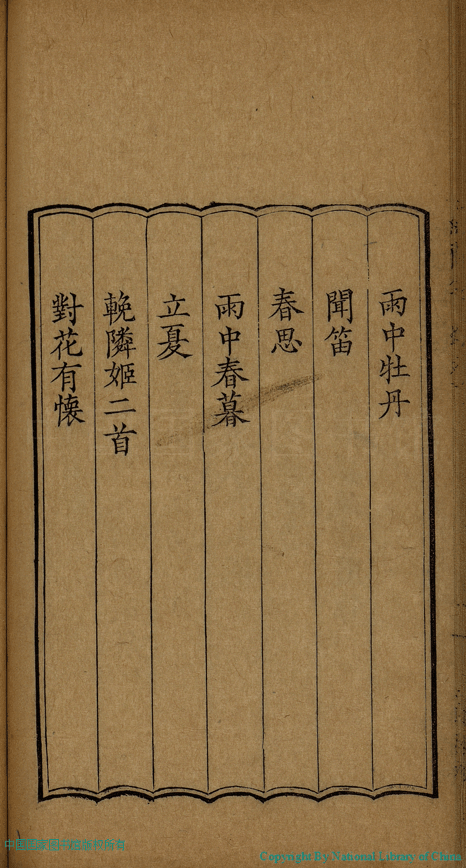 雨中牡丹
聞笛
春思
雨中春暮
立夏
輓隣姬二首
對花有懷
Copyright By National Library of China